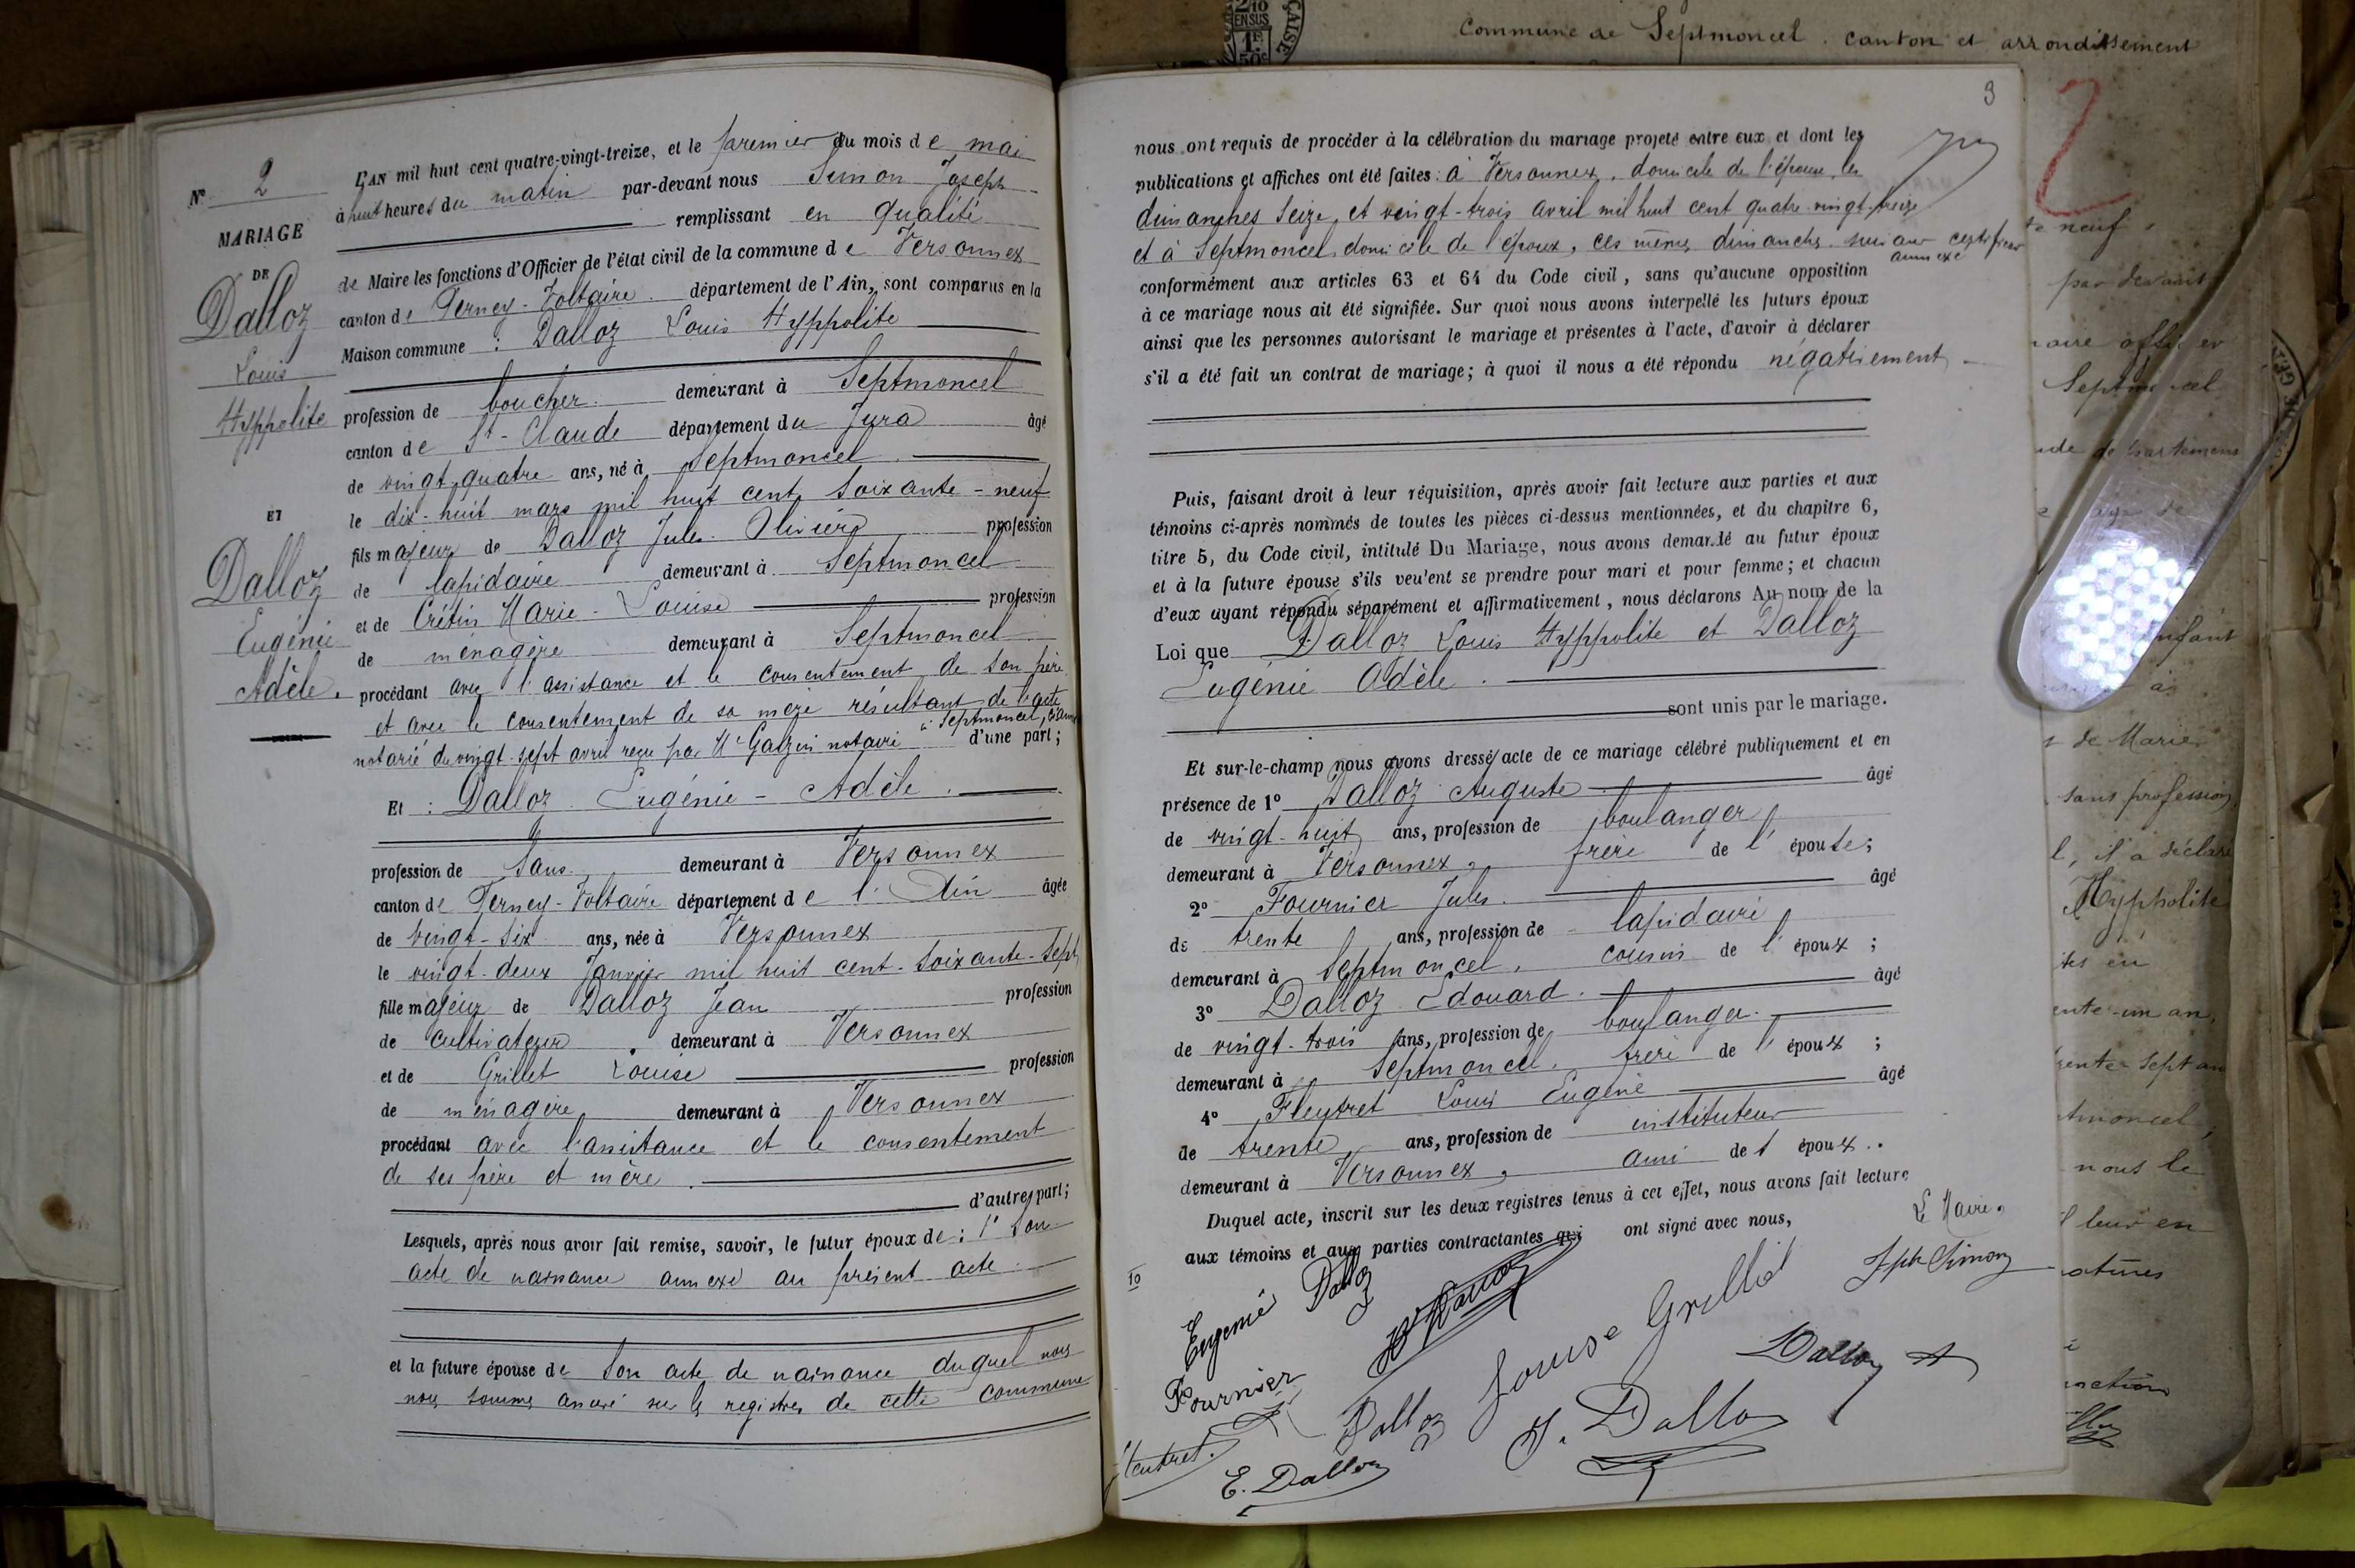 N° 2
MARIAGE
DE
Dalloz
Louis
Hyppolite
ET
Dalloz
Eugénie
Adèle.
L'AN mil huit cent quatre-vingt-treize, et le premier du mois de mai
à huit heures du matin par-devant nous Simon Joseph
remplissant en qualité
de Maire les fonctions d'Officier de l'état civil de la commune de Versonnex
canton de Ferney-Voltaire. département de l'Ain, sont comparus en la
Maison commune : Dalloz Louis Hyppolite
profession de boucher. demeurant à Septmoncel
canton de St-Claude département du Jura âgé
de vingt quatre ans, né à Septmoncel.
le dix-huit mars mil huit cent soixante-neuf
fils majeur de Dalloz Jules Olivier profession
de lapidaire demeurant à Septmoncel
et de Crétin Marie-Louise profession
de ménagère demeurant à Septmoncel
procédant avec l'assistance et le consentement de son père
et avec le consentement de sa mère résultant de l'acte
notarié du vingt-sept avril reçu par Me notaire à Septmoncel, d'une part;
Et : Dalloz Eugénie-Adèle.
profession de Sans. demeurant à Versonnex
canton de Ferney-Voltaire département de l'Ain âgée
de vingt-six ans, née à Versonnex
le vingt-deux Janvier mil huit cent-soixante-sept
fille majeur de Dalloz Jean profession
de cultivateur demeurant à Versonnex
et de Grillet Louise profession
de ménagère demeurant à Versonnex
procédant avec l'assistance et le consentement
de ses père et mère.
d'autre part;
Lesquels, après nous avoir fait remise, savoir, le futur époux de : 1° son
acte de naissance annexé au présent acte.
et la future épouse de son acte de naissance duquel nous
nous sommes assuré sur les registres de cette commune
3
nous ont requis de procéder à la célébration du mariage projeté entre eux et dont les
publications et affiches ont été faites : à Versonnex, domicile de l'épouse, les
dimanches seize et vingt-trois avril mil huit cent quatre-vingt-treize
et à Septmoncel domicile de l'époux, ces mêmes dimanches suivant certificat
annexé
conformément aux articles 63 et 64 du Code civil, sans qu'aucune opposition
à ce mariage nous ait été signifiée. Sur quoi nous avons interpellé les futurs époux
ainsi que les personnes autorisant le mariage et présentes à l'acte, d'avoir à déclarer
s'il a été fait un contrat de mariage; à quoi il nous a été répondu négativement
Puis, faisant droit à leur réquisition, après avoir fait lecture aux parties et aux
témoins ci-après nommés de toutes les pièces ci-dessus mentionnées, et du chapitre 6,
titre 5, du Code civil, intitulé Du Mariage, nous avons demandé au futur époux
et à la future épouse s'ils veulent se prendre pour mari et pour femme; et chacun
d'eux ayant répondu séparément et affirmativement, nous déclarons Au nom de la
Loi que Dalloz Louis Hyppolite et Dalloz
Eugénie Adèle.
sont unis par le mariage.
Et sur-le-champ nous avons dressé acte de ce mariage célébré publiquement et en
présence de 1° Dalloz Auguste âgé
de vingt-huit ans, profession de boulanger
demeurant à Versonnex, frère de l'épouse;
2° Fournier Jules. âgé
de trente ans, profession de lapidaire
demeurant à Septmoncel, cousin de l'époux;
3° Dalloz Edouard. âgé
de vingt-trois ans, profession de boulanger.
demeurant à Septmoncel. frère de l'époux;
4° Fleytret Louis Eugène âgé
de trente ans, profession de instituteur
demeurant à Versonnex, ami de l'époux..
Duquel acte, inscrit sur les deux registres tenus à cet effet, nous avons fait lecture
aux témoins et aux parties contractantes qui ont signé avec nous,
Le Maire,
Jph Simon
Eugenie Dalloz
Louise Grillet
Dalloz A
Fournier J
Dalloz
J. Dalloz
E. Dalloz
2/10
EN SUS
1F
50c
Commune de Septmoncel. canton et arrondissement
2
te neuf,
par devant
Septmoncel
de Marie
sans profession
l, il a déclaré
Hyppolite
ente-un an,
trente-sept an
tmoncel,
nous le
leur en